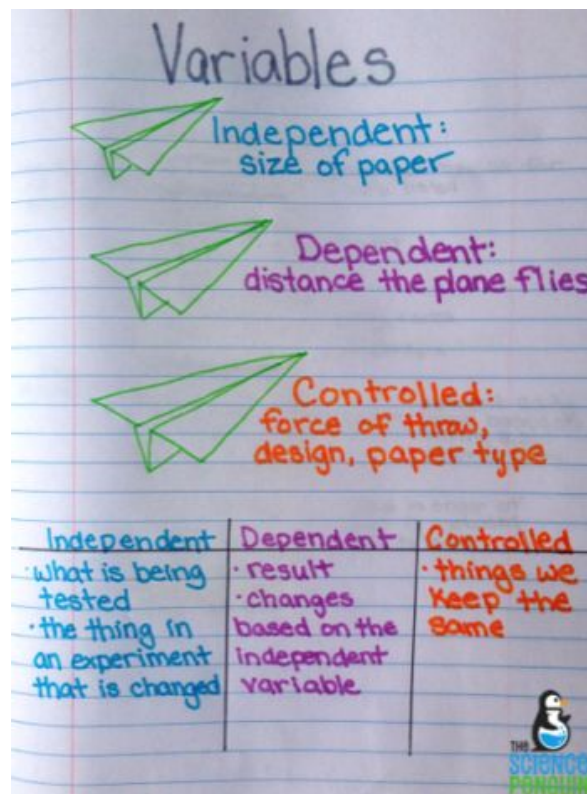 Variables
Independent:
size of paper
Dependent:
distance the plane flies
Controlled:
force of throw,
design, paper type
Independent
·what is being
tested
·the thing in
an experiment
that is changed
Dependent
·result
·changes
based on the
independent
variable
Controlled
·things we
keep the
same
THE
SCIENCE
PENGUIN